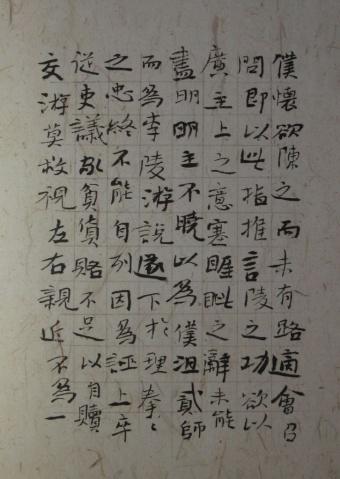 僕懷欲陳之而未有路適會召
問即以此指推言陵之功欲以
廣主上之意塞睚眦之辭未能
盡明明主不曉以為僕沮貳師
而為李陵游說遂下於理拳〻
之忠終不能自列因為誣上卒
從吏議家貧貨賂不足以自贖
交游莫救視左右親近不為一